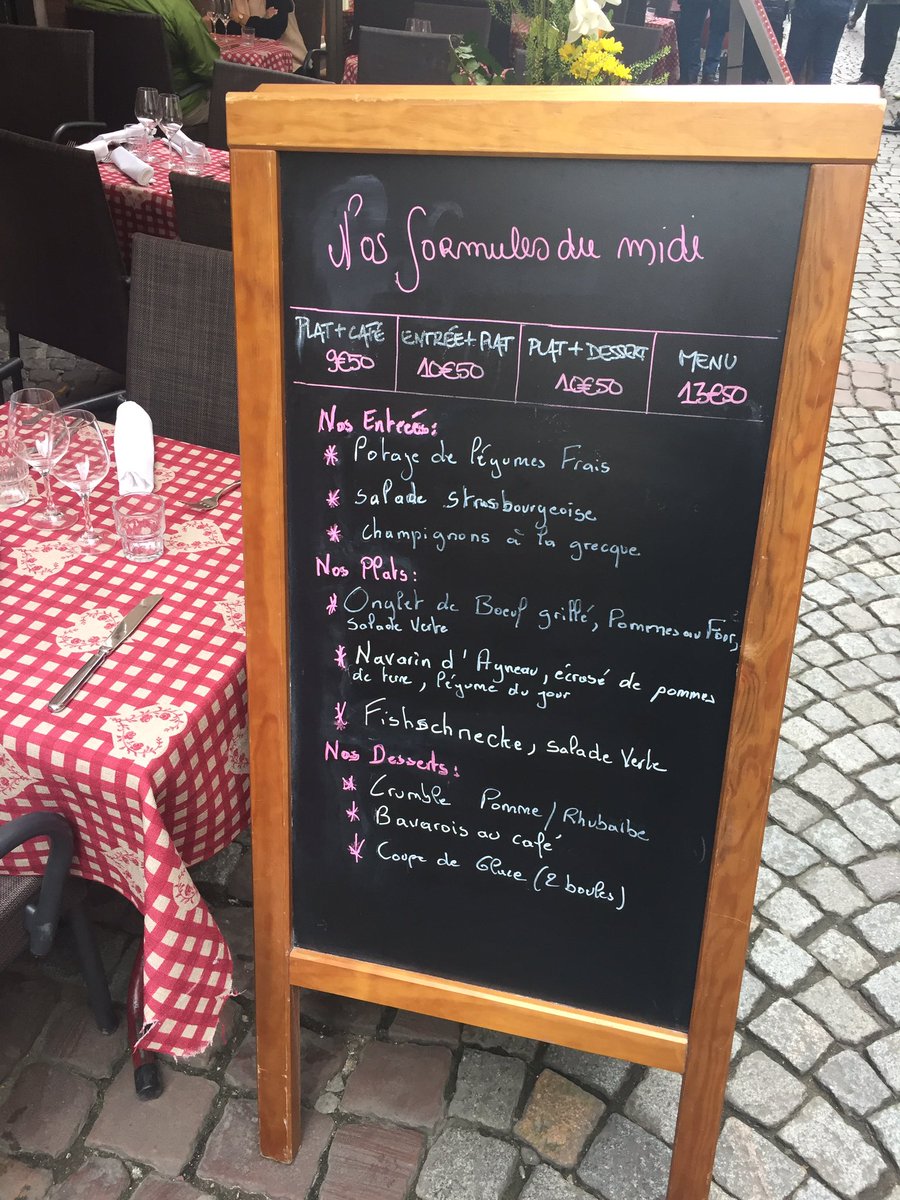 Nos formules du midi
PLAT + CAFÉ
9€50
ENTRÉE + PLAT
10€50
PLAT + DESSERT
10€50
MENU
13€50
Nos Entrées:
* Potage de légumes Frais
* Salade strasbourgeoise
* Champignons à la grecque
Nos Plats:
* Onglet de Boeuf grillé, Pommes au Four,
Salade Verte
* Navarin d'Agneau, écrasé de pommes
de terre, légume du jour
* Fishschnecke, Salade Verte
Nos Desserts:
* Crumble Pomme/Rhubarbe
* Bavarois au café
* Coupe de Glace (2 boules)